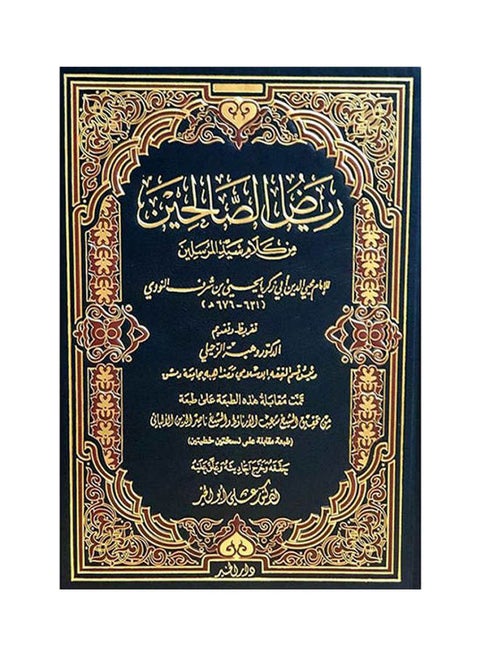 رياض الصالحين
من كلام سيد المرسلين
للإمام محيي الدين أبي زكريا يحيى بن شرف النووي
(٦٣١ - ٦٧٦ هـ)
تقريظ وتقديم
الدكتور وهبة الزحيلي
رئيس قسم الفقه الإسلامي ومذاهبه بجامعة دمشق
تمت مقابلة هذه الطبعة على طبعة
من تحقيق الشيخ شعيب الأرناؤوط والشيخ ناصر الدين الألباني
(طبعة مقابلة على نسختين خطيتين)
حققه وخرج أحاديثه وعلق عليه
الدكتور علي أبو الخير
دار الخير